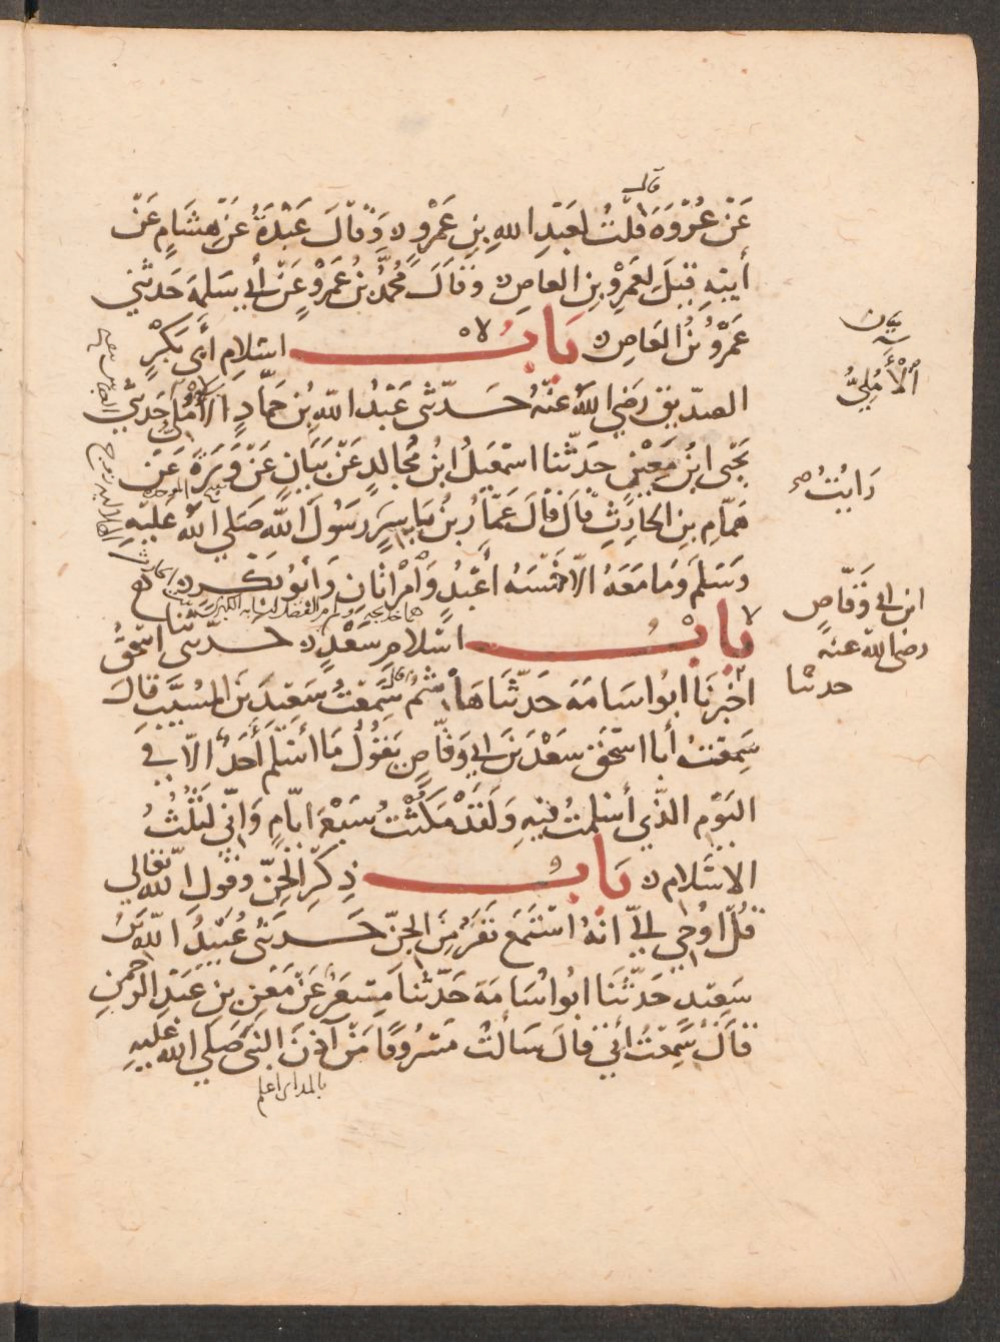 قال
عَنْ عُرْوَةَ قُلْتُ لِعَبْدِ اللهِ بنِ عَمْرٍو وَقَالَ عَبْدَةُ عَنْ هِشَامٍ عَنْ
أَبِيْهِ قِيلَ لِعَمْرِو بنِ العاصِ وَقَالَ مُحَمَّدُ بنُ عَمْرٍو عَنْ أَبِي سَلمَةَ حَدثَنِي
عَمْرُو بنُ العَاصِ بَابُ اسْلامِ أَبِي بَكْرٍ
الصدّيق رَضي اللهُ عنْهُ حَدّثنى عَبْدُ اللهِ بْنُ حَمَّادٍ الآمُلِيُّ حَدثني
يَحْيى ابنُ مَعِيْنٍ حَدَّثنا اسْمٰعيلُ ابنُ مُجَالدٍ عَنْ بَيَانٍ عَنْ وَبَرَةَ عَنْ
هَمَّامِ بنِ الحَارِثِ قَالَ قَالَ عَمَّارُ بنُ يَاسِرٍ رَسُولَ اللهِ صَلى اللهُ عليْهِ
وَسَلمَ وَمَا مَعَهُ الّا خَمْسَةُ أَعْبُدٍ وَامْرَاتَانِ وَأبُو بَكْر
بَابُ اسْلامِ سَعْدٍ حَدّثنى اسْحٰقُ
اخبَرَنَا ابُو اسَامَةَ حَدّثَنَا هَاشمٌ سَمِعْتُ سَعِيدَ بنَ المسَيَّبِ قالَ
سَمِعْتُ أبا اسْحٰقَ سَعْدَ بنَ ابي وَقّاصٍ يَقُولُ مَا أَسْلَمَ أَحَدٌ الّا فى
اليَوْمِ الذّي أسْلمتُ فيْهِ وَلَقَدْ مَكَثْتُ سَبْعَةَ ايَّامٍ وَانّي لَثُلُثُ
الاسْلَامِ بَابُ ذِكْرِ الْجِنِّ وَقَوْلِ اللهِ تعَالى
قُلْ اوُحِي اليَّ انّهُ اسْتَمَعَ نَفَرٌ مِنَ الجنّ حَدثنى عُبَيْدُ اللهِ بنُ
سَعِيْدٍ حَدّثَنَا ابُو اسَامَةَ حَدَّثنَا مِسْعَرٌ عَنْ مَعْنِ بنِ عَبْدِ الرّحمٰنِ
قَالَ سَمِعْتُ أَبِي قَالَ سَأَلْتُ مَسْرُوقًا مَنْ آذَنَ النبِيَّ صَلى اللهُ عَليْهِ
بالمد اى اعلم
اْلْأَمُلِيُّ
رَايْتُ صح
ابن ابي وَقّاصٍ
رضى اللهُ عنه
حدثنا